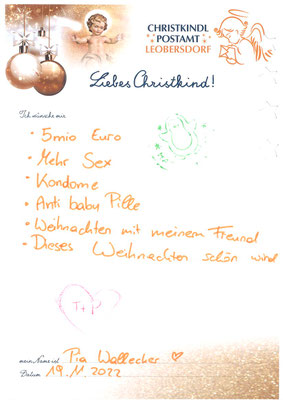 CHRISTKINDL
POSTAMT
LEOBERSDORF
Liebes Christkind!
Ich wünsche mir
• 5mio Euro
• Mehr Sex
• Kondome
• Anti baby Pille
• Weihnachten mit meinem Freund
• Dieses Weihnachten schön wird
T+P
mein Name ist Pia Wallecher
Datum 19.11.2022